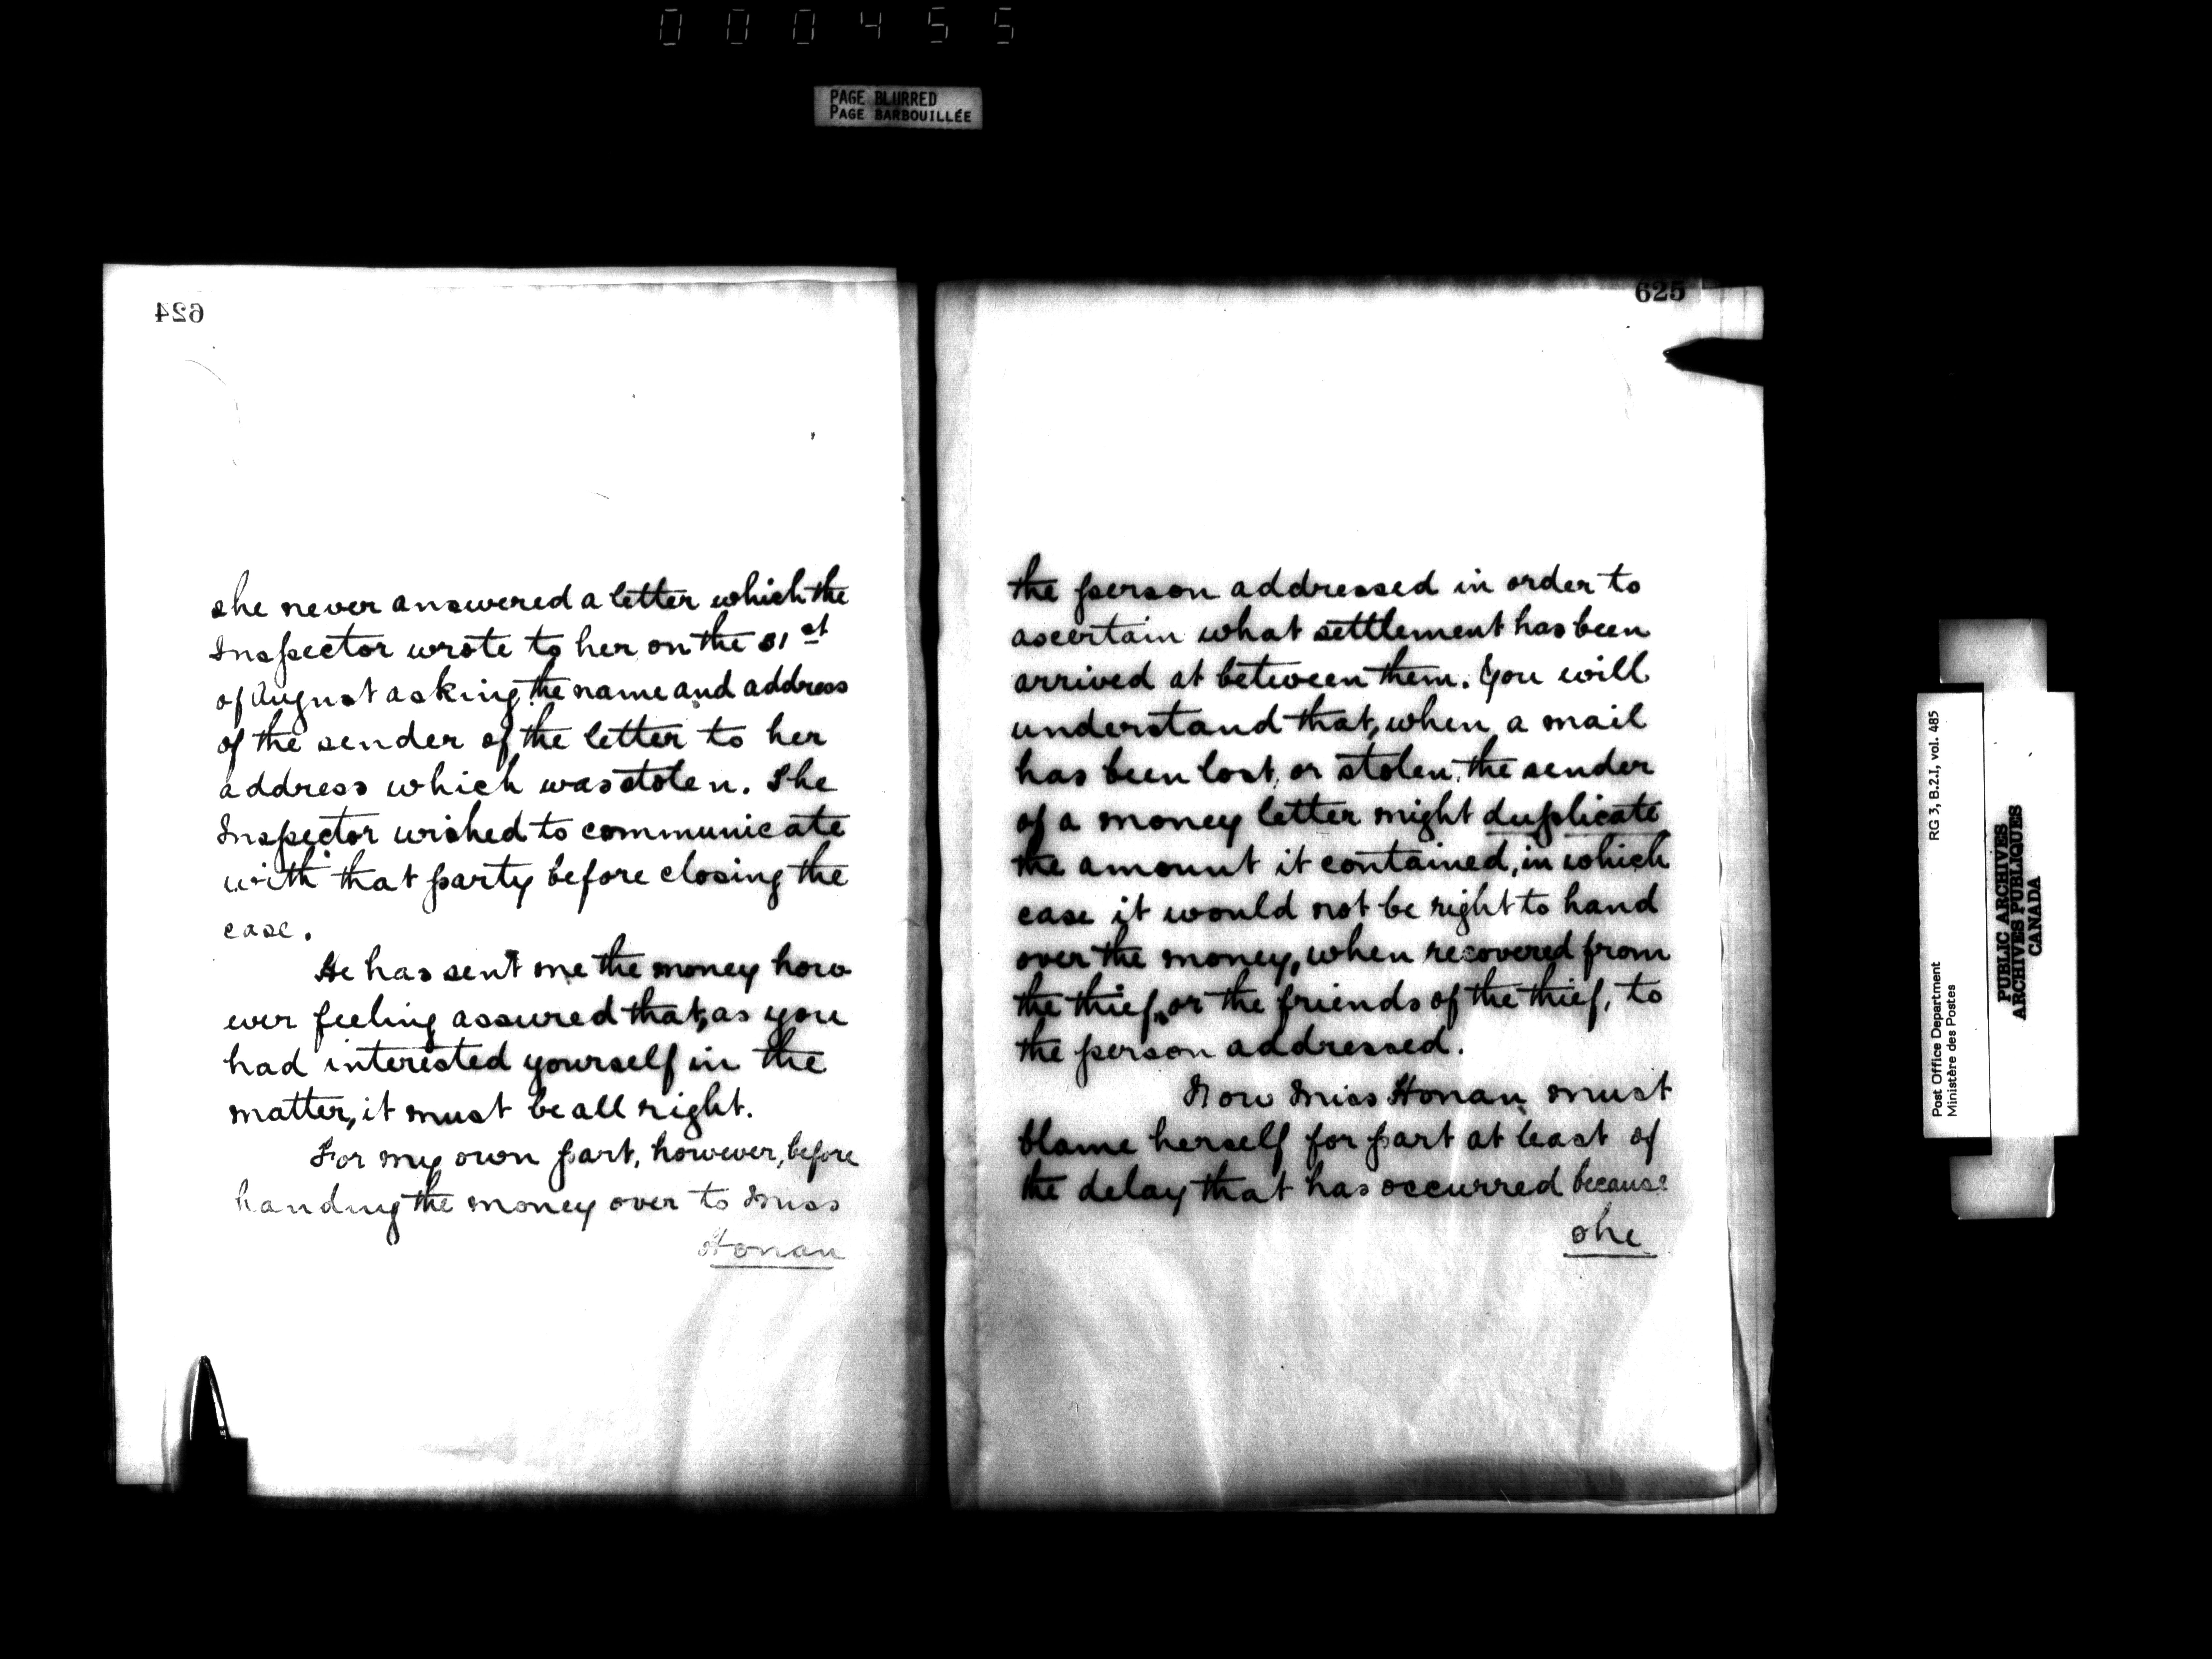 000455
PAGE BLURRED
PAGE BARBOUILLÉE
624
she never answered a letter which the
Inspector wrote to her on the 31st
of August asking the name and address
of the sender of the letter to her
address which was stolen. The
Inspector wished to communicate
with that party before closing the
case.
He has sent me the money how
ever feeling assured that, as you
had interested yourself in the
matter, it must be all right.
For my own part, however, before
handing the money over to Miss
Honan
625
the person addressed in order to
ascertain what settlement has been
arrived at between them. You will
understand that, when, a mail
has been lost, or stolen, the sender
of a money letter might duplicate
the amount it contained, in which
case it would not be right to hand
over the money, when recovered from
the thief, or the friends of the thief, to
the person addressed.
Now Miss Honan must
blame herself for part at least of
the delay that has occurred because
she
Post Office Department
Ministère des Postes
RG 3, B.2.I, vol. 485
PUBLIC ARCHIVES
ARCHIVES PUBLIQUES
CANADA